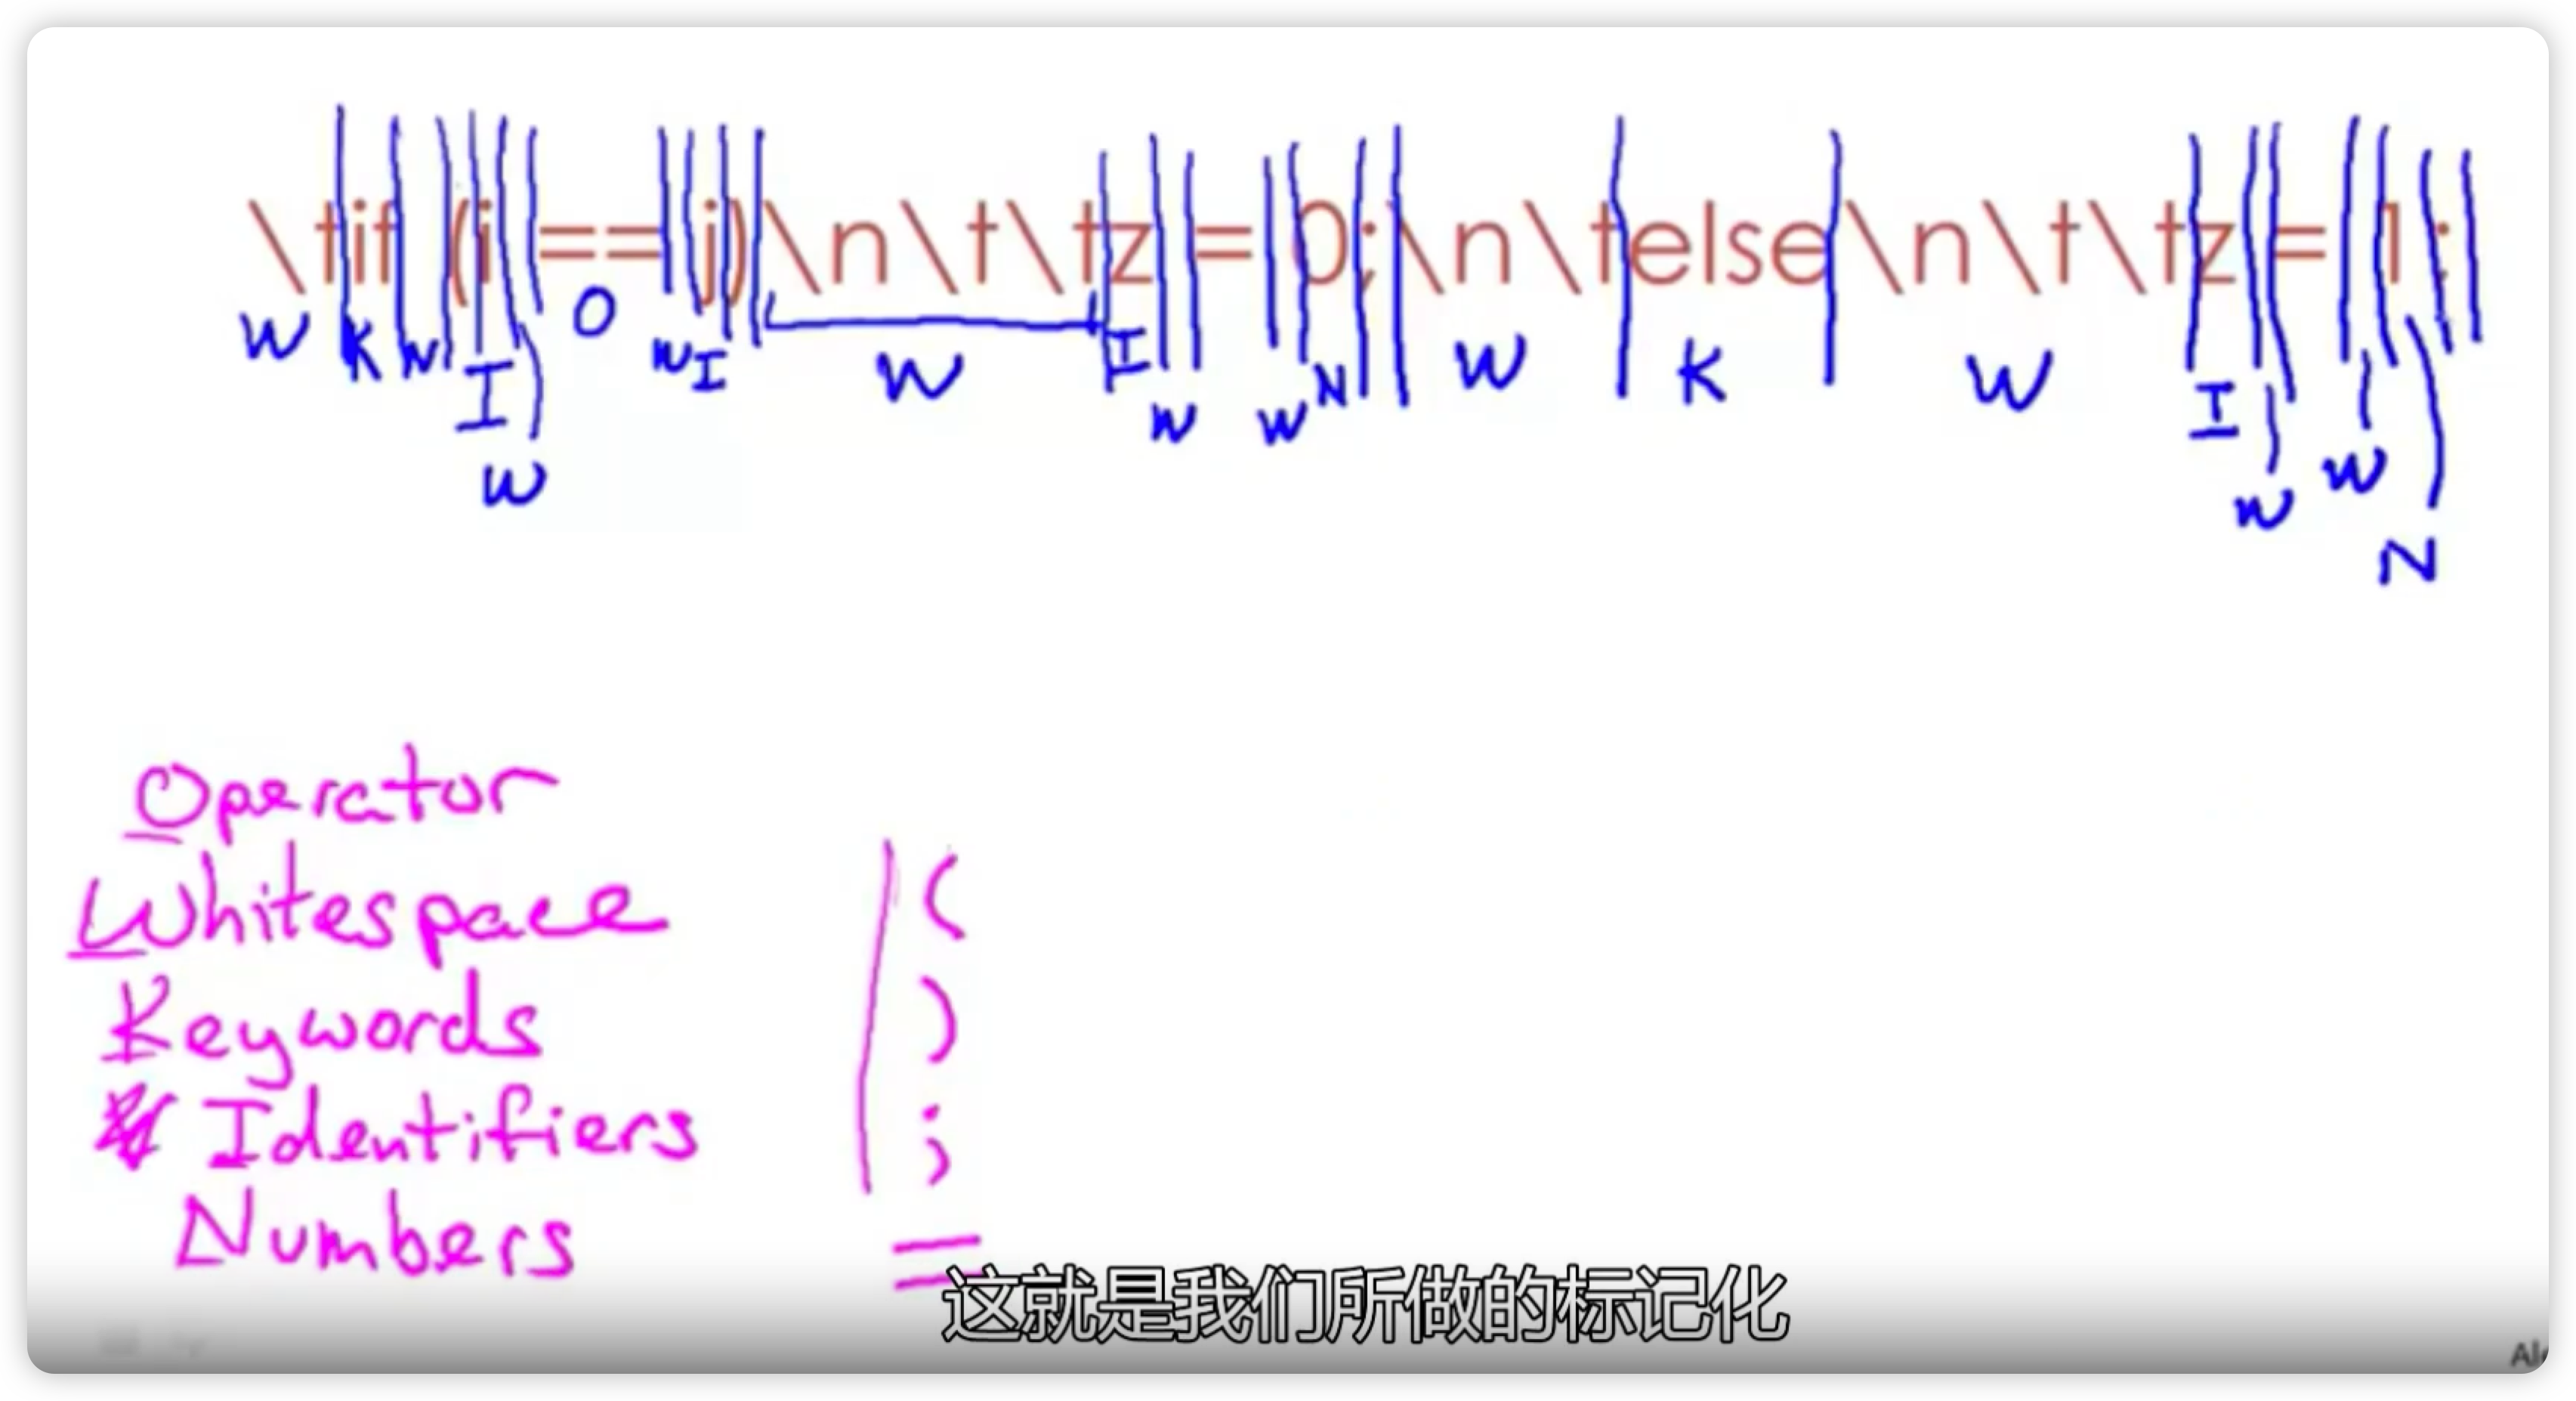 \tif (i == j)\n\t\tz = 0;\n\telse\n\t\tz = 1;
W K W I O W I W I N W K W I
W W W W W
N
Operator
Whitespace (
Keywords )
Identifiers ;
Numbers =
这就是我们所做的标记化